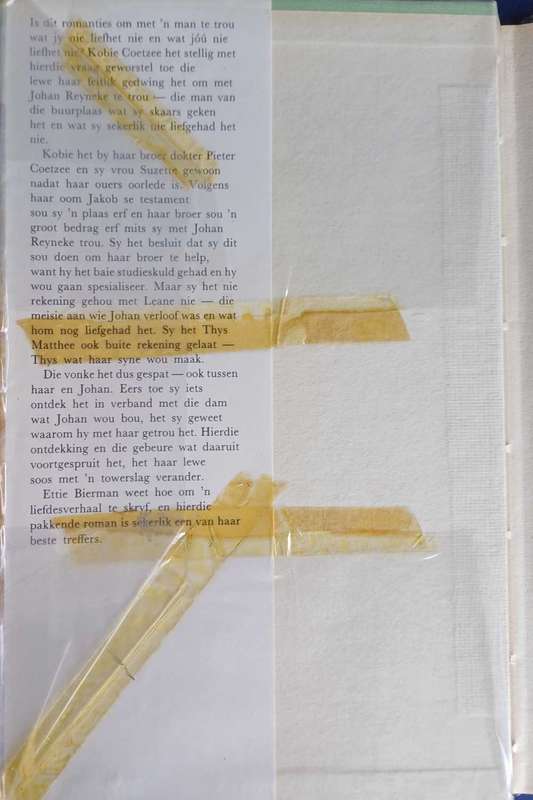 Is dit romanties om met 'n man te trou
wat jy nie liefhet nie en wat jóú nie
liefhet nie? Kobie Coetzee het stellig met
hierdie vraag geworstel toe die
lewe haar feitlik gedwing het om met
Johan Reyneke te trou — die man van
die buurplaas wat sy skaars geken
het en wat sy sekerlik nie liefgehad het
nie.
Kobie het by haar broer dokter Pieter
Coetzee en sy vrou Suzette gewoon
nadat haar ouers oorlede is. Volgens
haar oom Jakob se testament
sou sy 'n plaas erf en haar broer sou 'n
groot bedrag erf mits sy met Johan
Reyneke trou. Sy het besluit dat sy dit
sou doen om haar broer te help,
want hy het baie studieskuld gehad en hy
wou gaan spesialiseer. Maar sy het nie
rekening gehou met Leane nie — die
meisie aan wie Johan verloof was en wat
hom nog liefgehad het. Sy het Thys
Matthee ook buite rekening gelaat —
Thys wat haar syne wou maak.
Die vonke het dus gespat — ook tussen
haar en Johan. Eers toe sy iets
ontdek het in verband met die dam
wat Johan wou bou, het sy geweet
waarom hy met haar getrou het. Hierdie
ontdekking en die gebeure wat daaruit
voortgespruit het, het haar lewe
soos met 'n towerslag verander.
Ettie Bierman weet hoe om 'n
liefdesverhaal te skryf, en hierdie
pakkende roman is sekerlik een van haar
beste treffers.